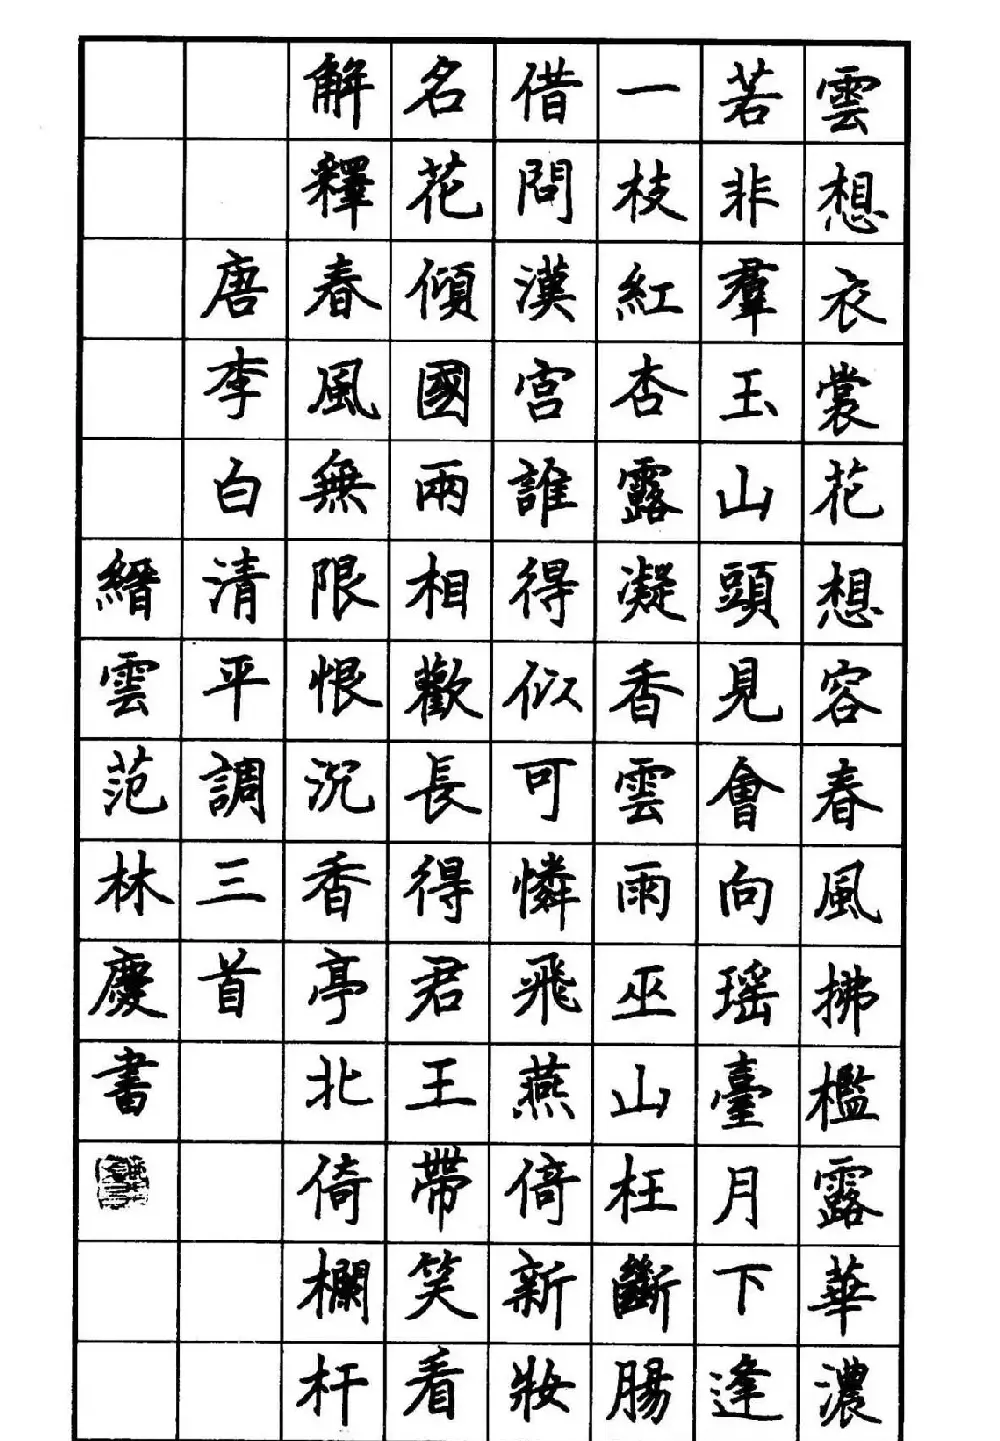 雲想衣裳花想容春風拂檻露華濃
若非羣玉山頭見會向瑶臺月下逢
一枝紅杏露凝香雲雨巫山枉斷腸
借問漢宮誰得似可憐飛燕倚新妝
名花傾國兩相歡長得君王帶笑看
解釋春風無限恨沉香亭北倚欄杆
唐李白清平調三首
縉雲范林慶書